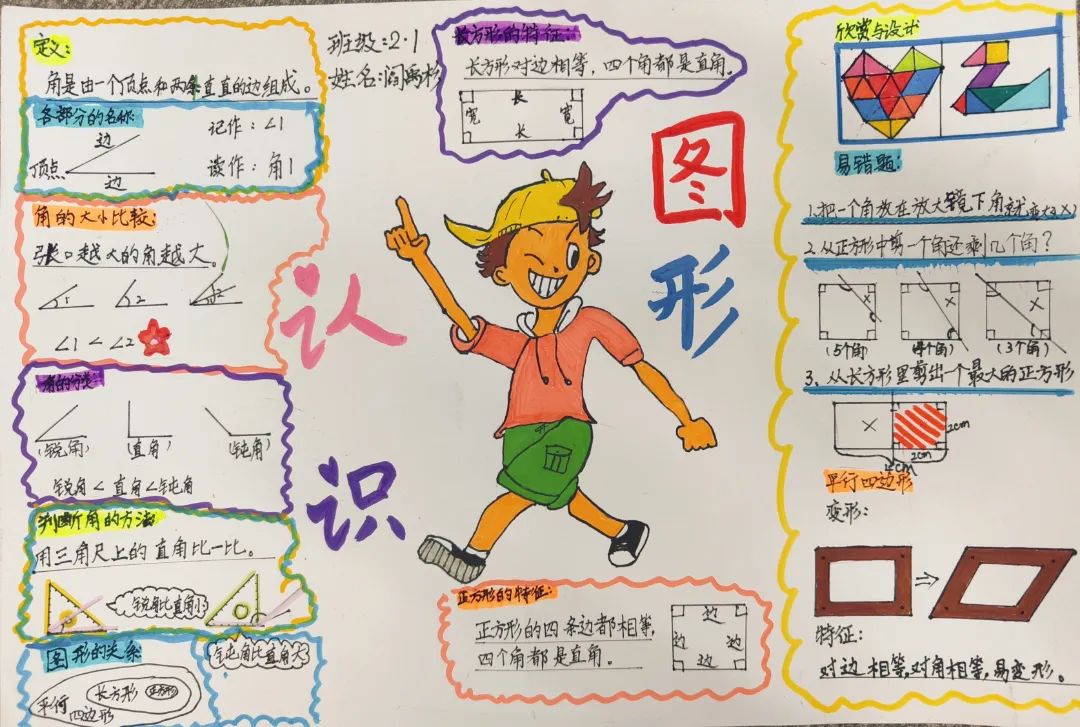 定义:
角是由一个顶点和两条直直的边组成。
各部分的名称
边
顶点
边
记作:∠1
读作:角1
角的大小比较:
张口越大的角越大。
1
2
2
∠1 < ∠2
角的分类:
(锐角)
(直角)
(钝角)
锐角 < 直角 < 钝角
判断角的方法
用三角尺上的直角比一比。
锐角比直角小
钝角比直角大
图形的关系
长方形
正方形
平行
四边形
班级:2·1
姓名:阎禹杉
长方形的特征:
长方形对边相等,四个角都是直角。
长
宽
宽
长
认识
图形
正方形的特征:
正方形的四条边都相等,
四个角都是直角。
边
边
边
边
欣赏与设计
易错题:
1.把一个角放在放大镜下角就变大(×)
2.从正方形中剪一个角还剩几个角?
×
×
×
(5个角)
(4个角)
(3个角)
3、从长方形里剪出一个最大的正方形
×
2cm
2cm
平行四边形
变形:
特征:
对边相等,对角相等,易变形。